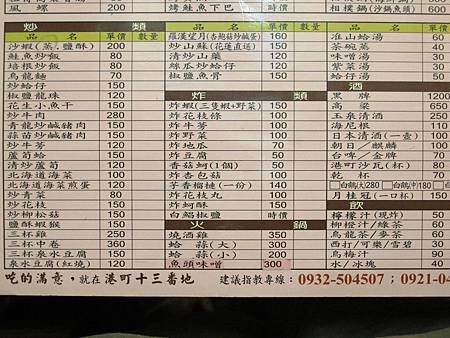 風螺 200
烤鮭魚下巴 時價
相撲鍋(沙鍋魚頭)
炒類
品名 單價 數量
沙蝦(蒸/鹽酥) 200
鮭魚炒飯 100
培根炒飯 80
烏龍麵 70
炒蛤仔 100
椒鹽龍珠 120
花生小魚干 150
炒牛肉 280
青龍炒鹹豬肉 150
蒜苗炒鹹豬肉 150
炒牛蒡 120
蘆筍蛤 150
清炒蘆筍 120
北海道海菜 100
北海道海菜煎蛋 120
炒青菜 80
炒花枝 150
炒柳松菇 150
鹽酥椒猴 150
三杯雞 250
三杯中卷 300
三杯泉水豆腐 150
泉水豆腐(紅燒) 120
品名 單價 數量
羅漢望月(杏鮑菇炒鹹蛋) 160
炒山蘇(花蓮直送) 130
清炒山藥 120
絲瓜炒蛤仔 150
椒鹽魚骨 150
炸類
炸蝦(三隻蝦+野菜) 150
炸花枝條 100
炸牛蒡 100
炸野菜 100
炸地瓜 70
炸豆腐 50
香菇蚵(1個) 50
炸杏包菇 100
芋香榴槤(一份) 140
炸花枝丸 100
炸蚵酥 150
白鯧椒鹽 時價
火鍋
燒酒雞 350
蛤蒜(大) 300
蛤蒜(小) 200
魚頭味噌 300
品名 單價
淮山蛤湯 60
茶碗蒸 40
味噌湯 30
紫菜湯 30
蛤仔湯 50
酒
黑牌 1200
高粱 650
玉泉清酒 250
海尼根 110
日本清酒(一壺) 100
朝日/麒麟 100
台啤/金牌 70
港町沙瓦(杯) 80
乾杯 70
白鶴(大)280 白鶴(中)180
月桂冠(一口杯) 150
飲
檸檬汁(現炸) 50
柳橙汁/綠茶 30
烏龍茶/麥茶 30
西打/可樂/雪碧 30
烏梅汁 90
水/冰塊 40
吃的滿意,就在港町十三番地
建議指教專線:0932-504507;0921-04